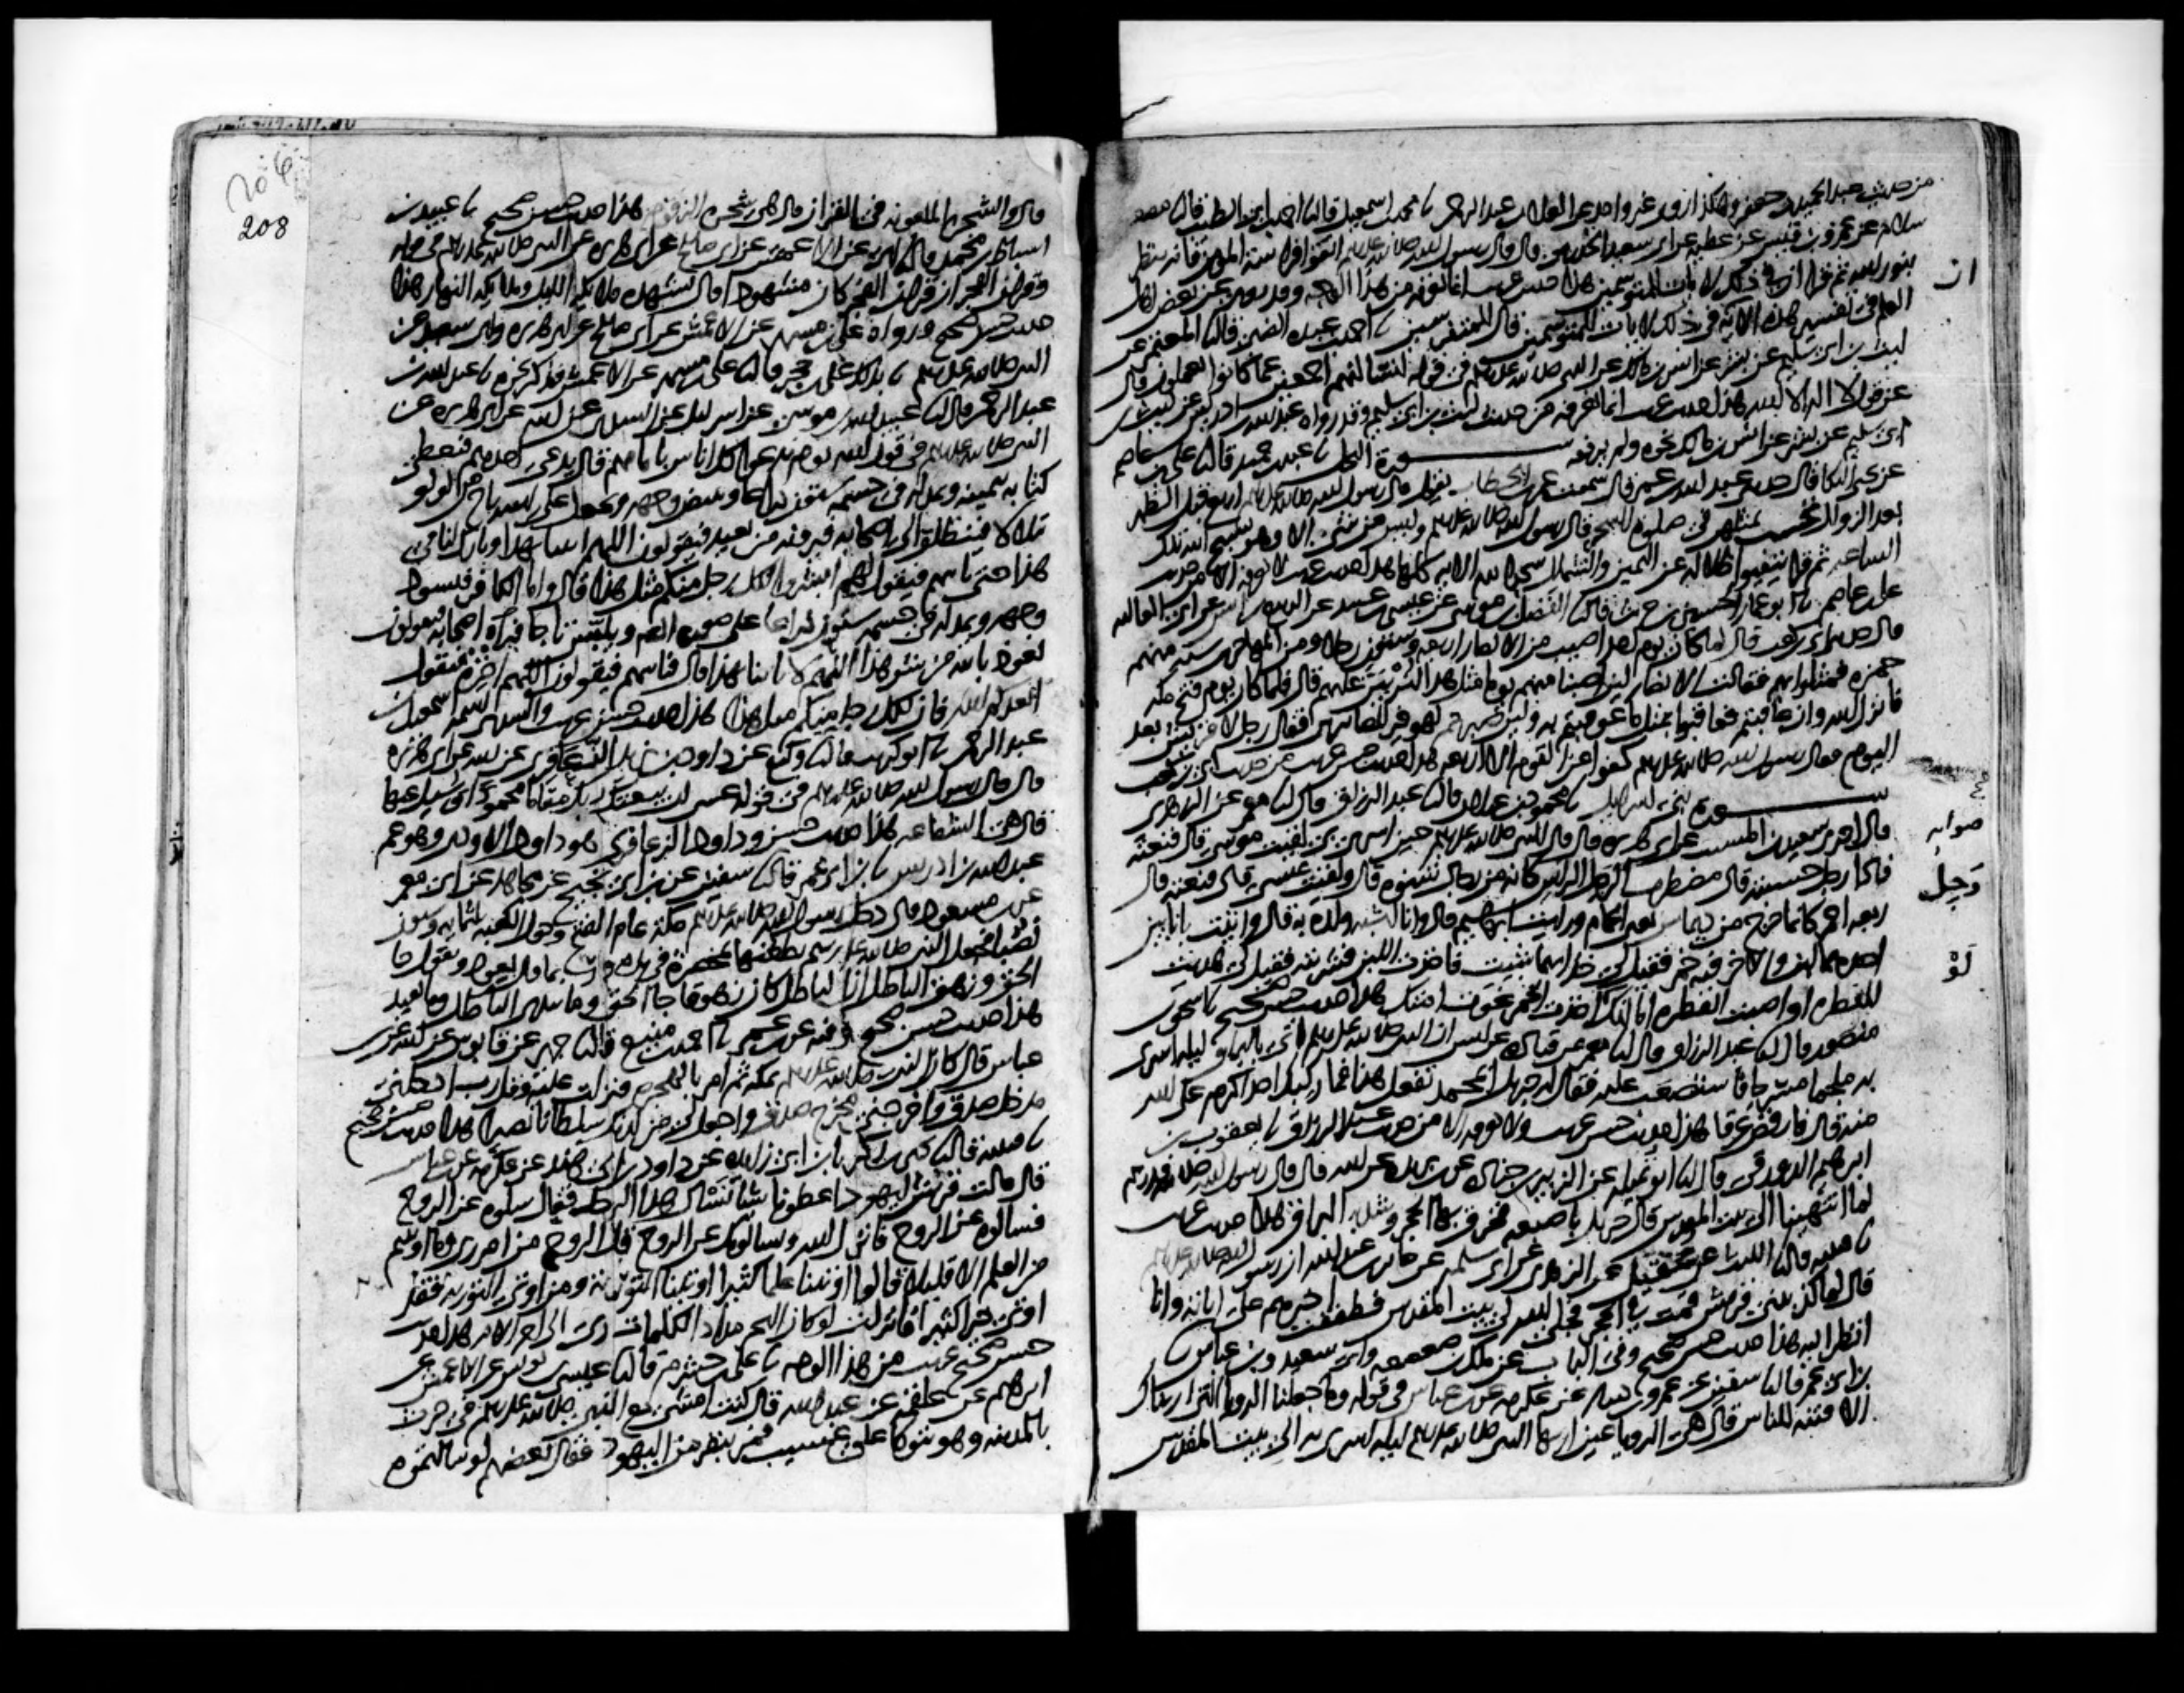 من حديث عبد الحميد بن جعفر وهكذا روى غير واحد عن العلا بن عبد الرحمن نا محمد بن اسمعيل قال نا احمد بن ابي الطيب قال نا مصعب
سلام عن عمرو بن قيس عن عطيه عن ابي سعيد الخدري قال قال رسول الله صلى الله عليه اتقوا فراسة المومن فانه ينظر
بنور الله ثم قرا ان في ذلك لايات للمتوسمين هذا حديث غريب انما نعرفه من هذا الوجه وقد روي عن بعض اهل
ان
العلم في تفسير هذه الايه في ذلك لايات للمتوسمين قال للمتفرسين نا احمد بن عبده الضبي قال نا المعتمر عن
ليث بن ابي سليم عن بشر عن انس بن مالك عن النبي صلى الله عليه في قوله لنسالنهم اجمعين عما كانوا يعملون قال
عن قول لا اله الا الله هذا حديث غريب انما نعرفه من حديث ليث بن ابي سليم وقد رواه عبد الله بن ادريس عن ليث بن
ابي سليم عن بشر عن انس بن مالك نحوه ولم يرفعه سورة النحل نا عبد بن حميد قال نا علي بن عاصم
عن يحيى البكا قال حدثني عبد الله بن عمر قال سمعت عمر بن الخطاب يقول قال رسول الله صلى الله عليه اربع قبل الظهر
بعد الزوال تحسب بمثلهن في صلوة السحر قال رسول الله صلى الله عليه وسلم وليس من شي الا وهو يسبح الله تلك
الساعه ثم قرا يتفيوا ظلاله عن اليمين والشمايل سجدا لله الايه كلها هذا حديث غريب لا نعرفه الا من حديث
علي بن عاصم نا ابو عمار الحسين بن حريث قال نا الفضل بن موسى عن عيسى بن عبيد عن الربيع بن انس عن ابي العاليه
قال حدثني ابي بن كعب قال لما كان يوم احد اصيب من الانصار اربعه وستون رجلا ومن المهاجرين سته منهم
حمزه فمثلوا بهم فقالت الانصار لئن اصبنا منهم يوما مثل هذا لنربين عليهم قال فلما كان يوم فتح مكه
فانزل الله وان عاقبتم فعاقبوا بمثل ما عوقبتم به ولئن صبرتم لهو خير للصابرين فقال رجل لا قريش بعد
اليوم فقال رسول الله صلى الله عليه وسلم كفوا عن القوم الا اربعه هذا حديث حسن غريب من حديث ابي بن كعب
سورة بني اسرايل نا محمود بن غيلان قال نا عبد الرزاق قال نا معمر عن الزهري
قال اخبرني سعيد بن المسيب عن ابي هريره قال قال النبي صلى الله عليه وسلم حين اسري بي لقيت موسى قال فنعته
صوابه
فاذا رجل حسبته قال مضطرب الرجل الراس كانه من رجال شنوه قال ولقيت عيسى قال فنعته قال
وجل
ربعه احمر كانما خرج من ديماس يعني الحمام ورايت ابرهيم قال وانا اشبه ولده به قال واتيت باناين
احدهما لبن والاخر فيه خمر فقيل لي خذ ايهما شيت فاخذت اللبن فشربته فقيل لي هديت
لو
للفطره او اصبت الفطره اما انك اخذت الخمر غوت امتك هذا حديث حسن صحيح نا اسحق بن
منصور قال نا عبد الرزاق قال نا معمر عن قتاده عن انس ان النبي صلى الله عليه وسلم اتي بالبراق ليله اسري
به ملجما مسرجا فاستصعب عليه فقال له جبريل ابمحمد تفعل هذا فما ركبك احد اكرم على الله
منه قال فارفض عرقا هذا حديث حسن غريب ولا نعرفه الا من حديث عبد الرزاق نا يعقوب بن
ابرهيم الدورقي قال نا ابو تميله عن الزبير بن جناده عن ابن بريده عن ابيه قال قال رسول الله صلى الله عليه وسلم
لما انتهينا الى بيت المقدس قال جبريل باصبعه فخرق بها الحجر وشد به البراق هذا حديث غريب
نا قتيبه قال نا الليث عن عقيل عن الزهري عن ابي سلمه عن جابر بن عبد الله ان رسول الله صلى الله عليه وسلم
قال لما كذبتني قريش قمت في الحجر فجلى الله لي بيت المقدس فطفقت اخبرهم عن اياته وانا
انظر اليه هذا حديث حسن صحيح وفي الباب عن ملك بن صعصعه وابي سعيد وابن عباس نا
بن ابي عمر قال نا سفين عن عمرو بن دينار عن عكرمه عن ابن عباس في قوله وما جعلنا الرويا التي اريناك
الا فتنه للناس قال هي الرويا عين اريها النبي صلى الله عليه وسلم ليله اسري به الى بيت المقدس
208
قال والشجره الملعونه في القران قال هي شجره الزقوم هذا حديث حسن صحيح نا عبيد بن
اسباط بن محمد قال نا ابي عن الاعمش عن ابي صالح عن ابي هريره عن النبي صلى الله عليه وسلم في قوله
وقران الفجر ان قران الفجر كان مشهودا قال تشهده ملايكه الليل وملايكه النهار هذا
حديث حسن صحيح ورواه علي بن مسهر عن الاعمش عن ابي صالح عن ابي هريره وابي سعيد عن
النبي صلى الله عليه وسلم نا بذلك علي بن حجر قال نا علي بن مسهر عن الاعمش فذكر نحوه نا عبد الله بن
عبد الرحمن قال نا عبيد الله بن موسى عن اسرايل عن السدي عن ابيه عن ابي هريره عن
النبي صلى الله عليه وسلم في قول الله يوم ندعوا كل اناس بامامهم قال يدعى احدهم فيعطى
كتابه بيمينه ويمد له في جسمه ستون ذراعا ويبيض وجهه ويجعل على راسه تاج من لولو
يتلالا فينطلق الى اصحابه فيرونه من بعيد فيقولون اللهم ايتنا بهذا وبارك لنا في
هذا حتى ياتيهم فيقول لهم ابشروا لكل رجل منكم مثل هذا قال واما الكافر فيسود
وجهه ويمد له في جسمه ستون ذراعا على صوره ادم ويلبس تاجا فيراه اصحابه فيقولون
نعوذ بالله من شر هذا اللهم لا تاتنا بهذا قال فياتيهم فيقولون اللهم اخزه فيقول
ابعدكم الله فان لكل رجل منكم مثل هذا هذا حديث حسن غريب والسدي اسمه اسمعيل بن
عبد الرحمن نا ابو كريب قال نا وكيع عن داود بن يزيد الزعافري عن ابيه عن ابي هريره
قال قال رسول الله صلى الله عليه وسلم في قوله عسى ان يبعثك ربك مقاما محمودا وسيل عنها
قال هي الشفاعه هذا حديث حسن وداود الزعافري هو داود الاودي وهو عم
عبد الله بن ادريس نا بن ابي عمر قال نا سفين عن ابن ابي نجيح عن مجاهد عن ابي معمر
عن ابن مسعود قال دخل رسول الله صلى الله عليه وسلم مكه عام الفتح وحول الكعبه ثلثمايه وستون
نصبا فجعل النبي صلى الله عليه وسلم يطعنها بمخصره في يده وربما قال بعود ويقول جا
الحق وزهق الباطل ان الباطل كان زهوقا جا الحق وما يبدي الباطل وما يعيد
هذا حديث حسن صحيح وفيه عن ابن عمر نا احمد بن منيع قال نا جرير عن قابوس عن ابيه عن ابن
عباس قال كان النبي صلى الله عليه وسلم بمكه ثم امر بالهجره فنزلت عليه وقل رب ادخلني
مدخل صدق واخرجني مخرج صدق واجعل لي من لدنك سلطانا نصيرا هذا حديث حسن صحيح
نا قتيبه قال نا يحيى بن زكريا بن ابي زايده عن داود بن ابي هند عن عكرمه عن ابن عباس
قال قالت قريش ليهود اعطونا شيا نسال هذا الرجل فقال سلوه عن الروح
فسالوه عن الروح فانزل الله ويسالونك عن الروح قل الروح من امر ربي وما اوتيتم
من العلم الا قليلا قالوا اوتينا علما كثيرا اوتينا التوريه ومن اوتي التوريه فقد
اوتي خيرا كثيرا فانزلت لو كان البحر مدادا لكلمات ربي الى اخر الايه هذا حديث
حسن صحيح غريب من هذا الوجه نا علي بن خشرم قال نا عيسى بن يونس عن الاعمش عن
ابرهيم عن علقمه عن عبد الله قال كنت امشي مع النبي صلى الله عليه وسلم في حرث
بالمدينه وهو يتوكا على عسيب فمر بنفر من اليهود فقال بعضهم لو سالتموه